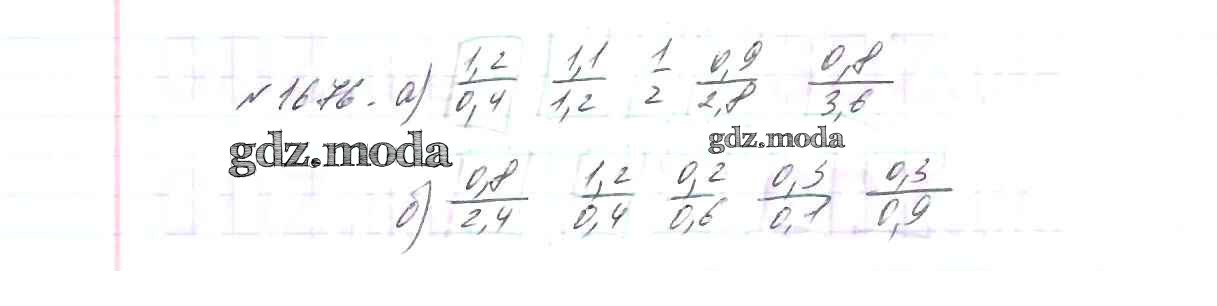 № 1676. а) 1,2/0,4 1,1/1,2 1/2 0,9/2,8 0,8/3,6
gdz.moda gdz.moda
б) 0,8/2,4 1,2/0,4 0,2/0,6 0,3/0,1 0,3/0,9